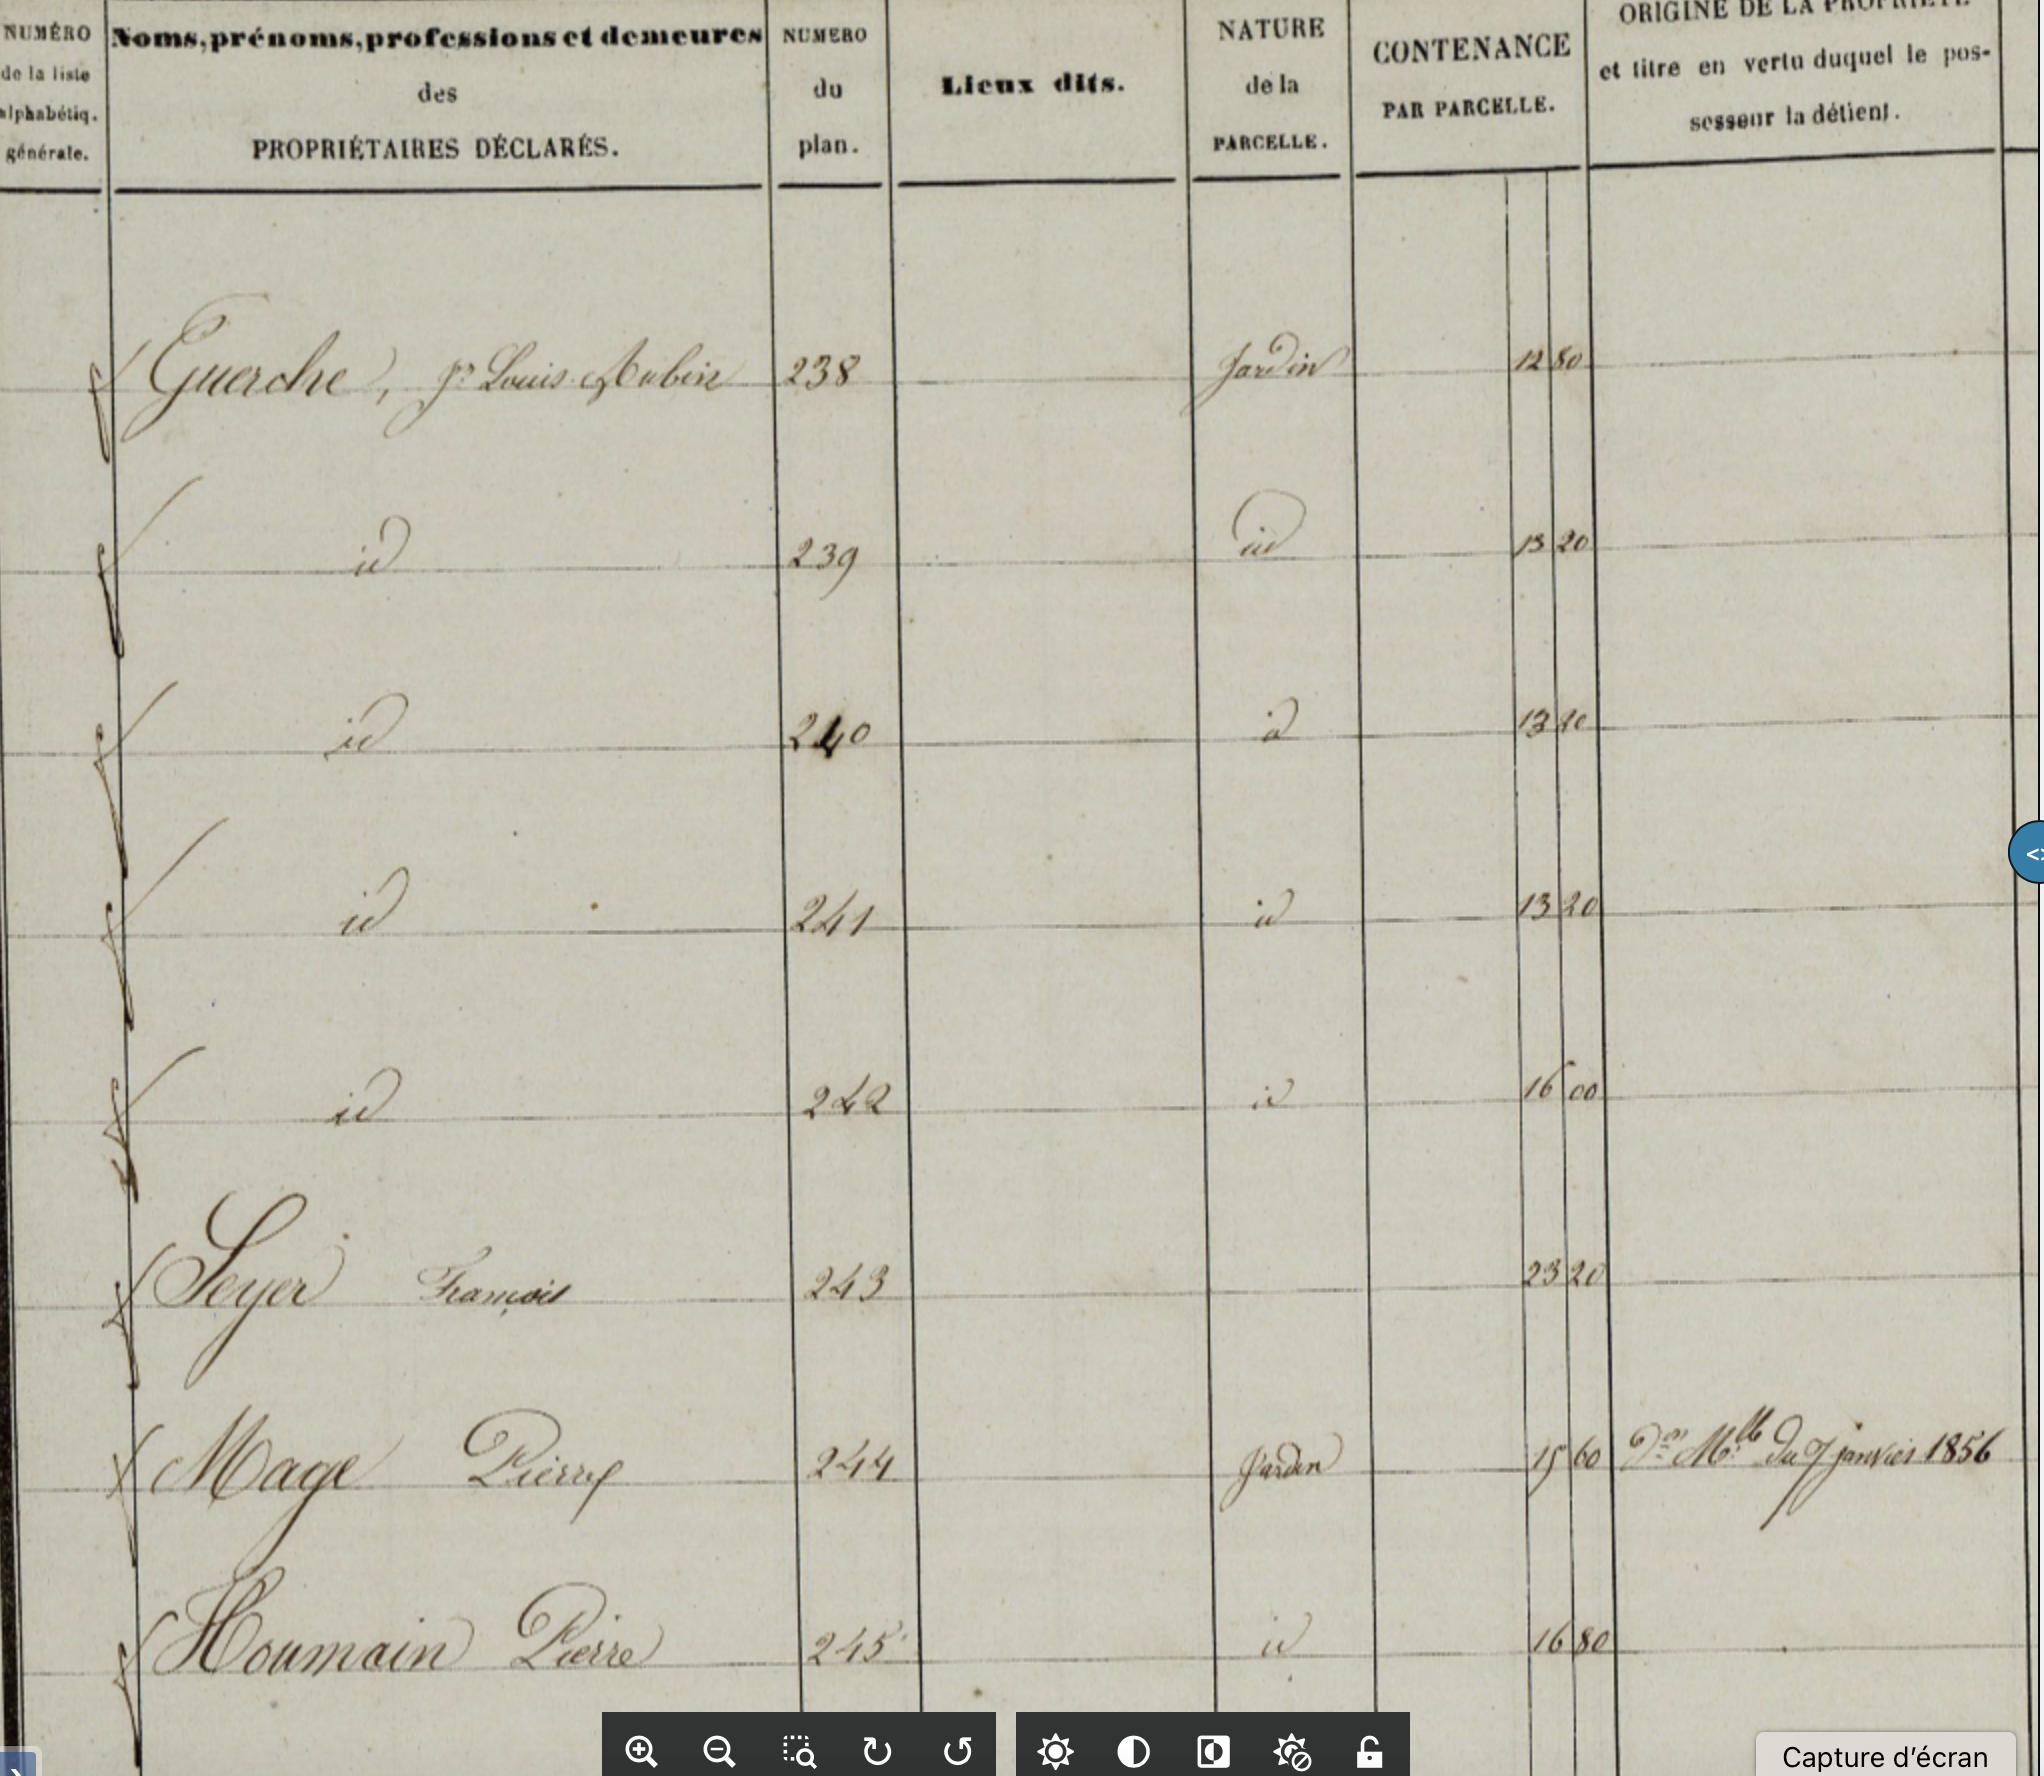 NUMÉRO
de la liste
alphabétiq.
générale.
Noms, prénoms, professions et demeures
des
PROPRIÉTAIRES DÉCLARÉS.
NUMERO
du
plan.
Lieux dits.
NATURE
de la
PARCELLE.
CONTENANCE
PAR PARCELLE.
ORIGINE DE LA PROPRIÉTÉ
et titre en vertu duquel le pos-
sesseur la détient.
Guerche, Jn Louis Aubin 238 Jardin 12 80
id 239 id 13 20
id 240 id 13 20
id 241 id 13 20
id 242 id 16 00
Soyer François 243 23 20
Mage Pierre 244 Jardin 15 60 Don Mlle du 7 janvier 1856
Houmain Pierre 245 id 16 80
Capture d’écran